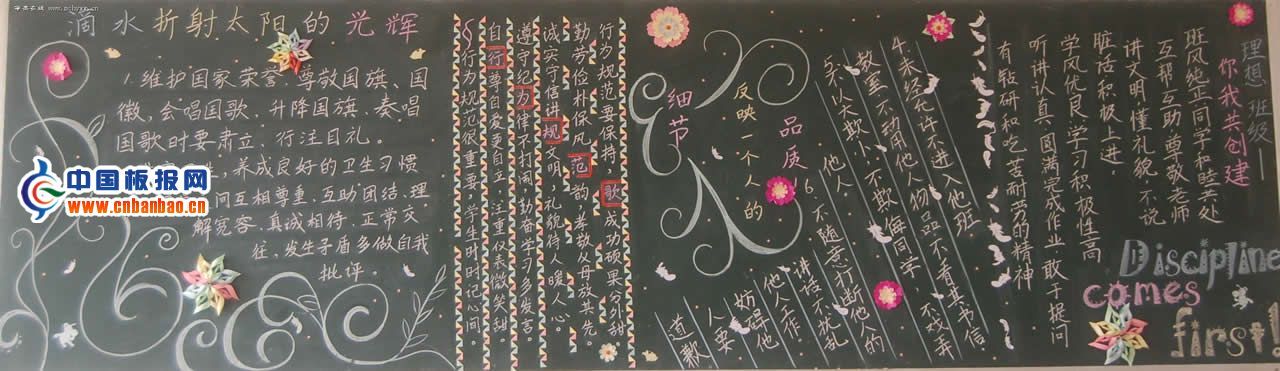 中国板报网
www.cnbanbao.cn
滴水折射太阳的光辉
1.维护国家荣誉,尊敬国旗、国
徽,会唱国歌,升降国旗、奏唱
国歌时要肃立、行注目礼。
养成良好的卫生习惯
间互相尊重、互助团结、理
解宽容、真诚相待、正常交
往,发生矛盾多做自我
批评。
行为规范歌
行为规范很重要,学生时时记心间。
自尊自爱更自立,注重仪表微笑甜
遵守纪律不打闹,勤奋学习多发言。
诚实守信讲文明,礼貌待人暖人心。
勤劳俭朴保风韵,孝敬父母放其先。
行为规范要保持,成功硕果分外甜。
细节
反映一个人的
品质
4.未经允许不进入他班
教室,不动用他人物品、不看其书信.
以大欺小,不欺侮同学、不戏弄
他人
6、不随意打断他人的
讲话、不扰乱
他人工作、
妨碍他
人要
道歉
理想班级——
你我共创建
班风纯正,同学和睦共处
互帮互助,尊敬老师
讲文明,懂礼貌,不说
脏话积极上进.
学风优良,学习积极性高
听讲认真,圆满完成作业,敢于提问
有钻研和吃苦耐劳的精神
Discipline
comes
first!